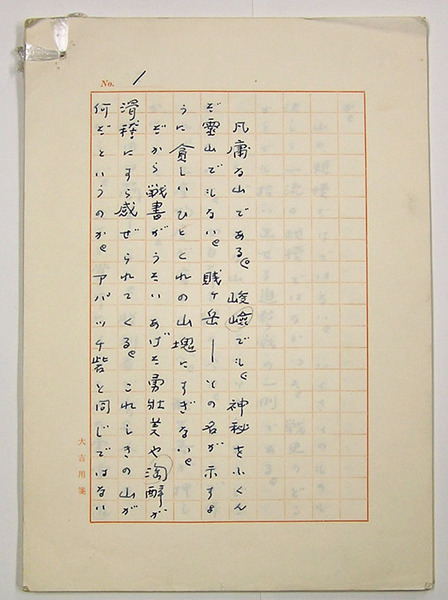 No. 1
凡庸な山である。峻嶮でも、神秘をふくん
だ霊山でもない。賤ヶ岳―その名が示すよ
うに貧しいひとくれの山塊にすぎない。
だから戦書がうたいあげた勇壮美や淘酔が
滑稽にすら感ぜられてくる。これしきの山が
何だというのか。アパッチ砦と同じではない
大吉用箋